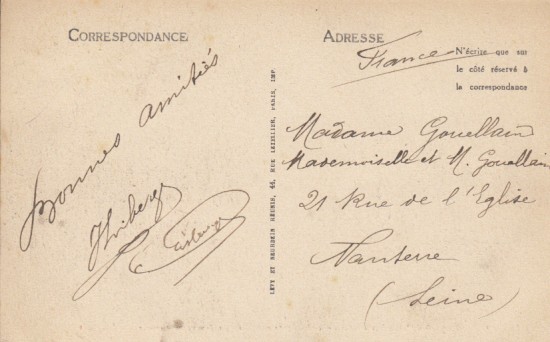 CORRESPONDANCE
Bonnes amitiés
LÉVY ET NEURDEIN RÉUNIS, 44, RUE LETELLIER, PARIS, IMP.
ADRESSE
France
N'écrire que sur
le côté réservé à
la correspondance
Madame Gouellain
Mademoiselle et M. Gouellain
21 Rue de l'Eglise
Nanterre
(Seine)